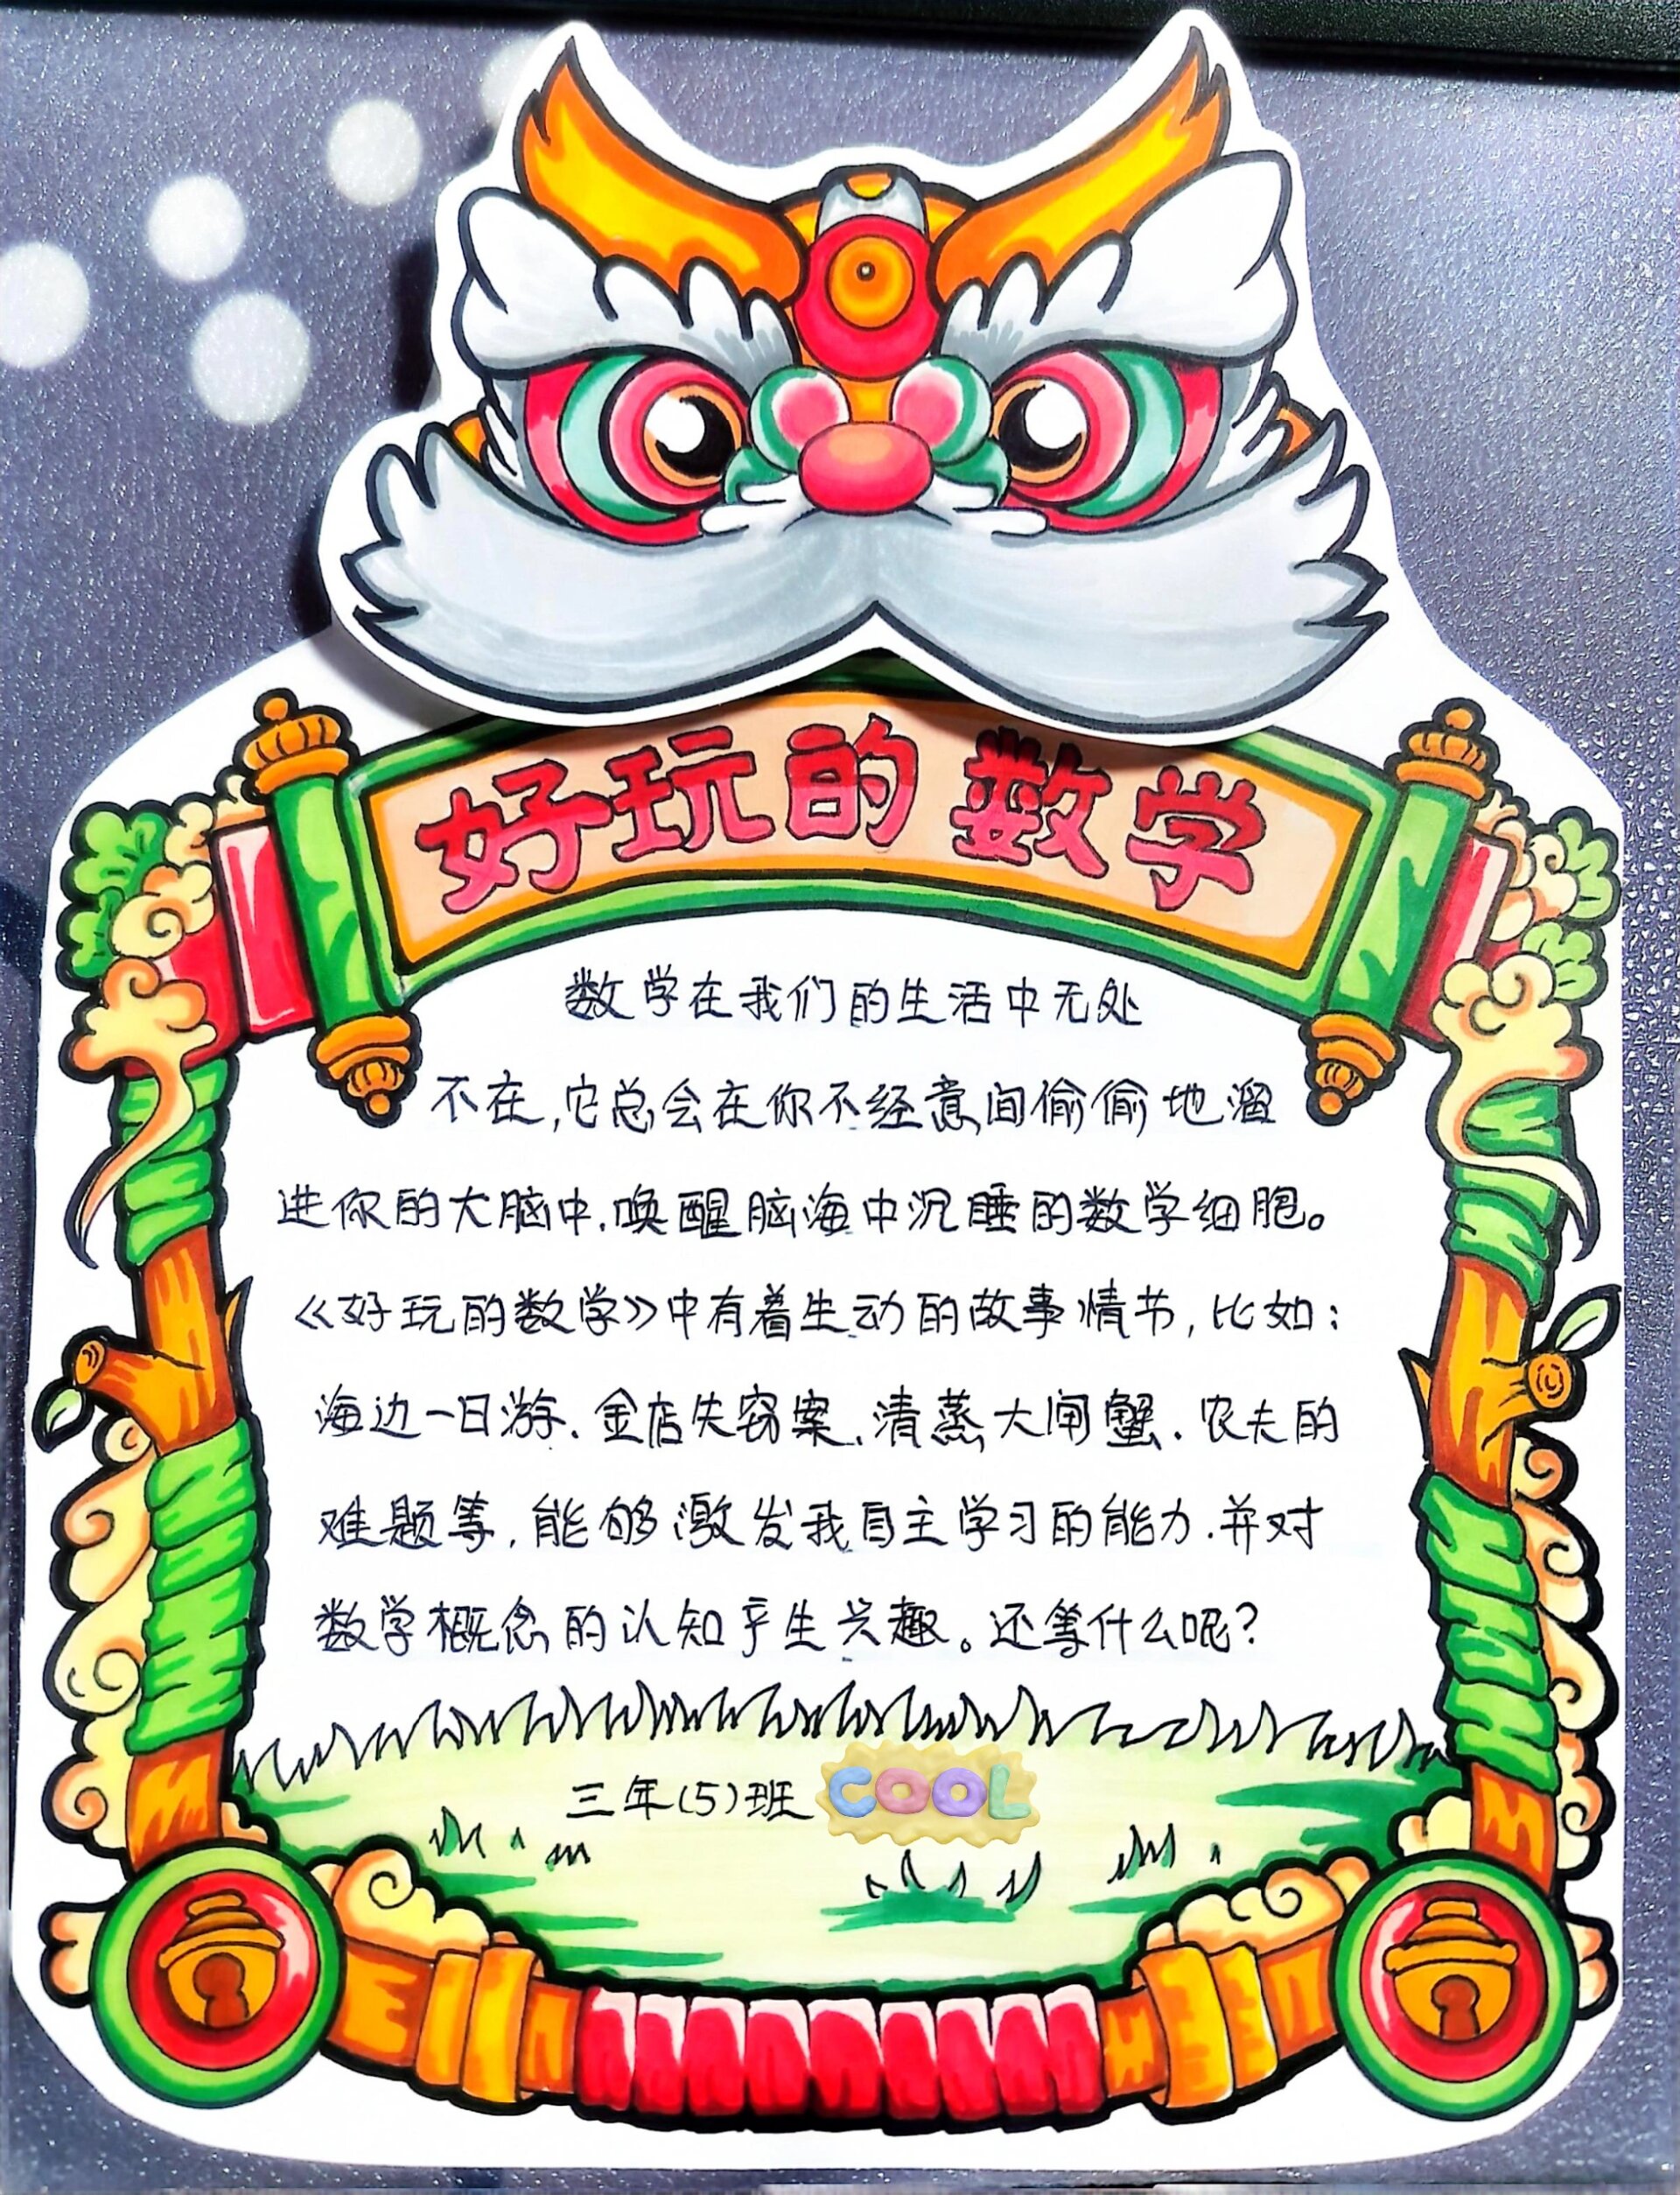 好玩的数学
数学在我们的生活中无处
不在,它总会在你不经意间偷偷地溜
进你的大脑中,唤醒脑海中沉睡的数学细胞。
《好玩的数学》中有着生动的故事情节,比如:
海边一日游、金店失窃案、清蒸大闸蟹、农夫的
难题等,能够激发我自主学习的能力,并对
数学概念的认知产生兴趣。还等什么呢?
三年(5)班 COOL